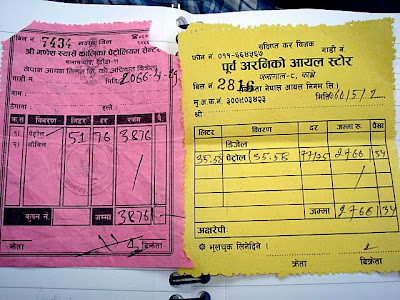 बिल नं. 7434 नगद बिल
श्री गणेश स्याङ्के कालिका पेट्रोलियम सेन्टर
नेपाल आयल निगम लि. को अधिकृत बिक्रेता
गाडी नं. मिति: 2066-4-29
ठेगाना: हस्ते:
क.सं विवरण लिटर दर रकम पै
१। पेट्रोल 51 76 3876
२। मोबिल
कुपन नं. जम्मा 3876
क्रेता बिक्रेता
संक्षिप्त कर बिजक
फोन नं. ०११-६६४५६७ गाडी नं.
पूर्व अरनिको आयल स्टोर
जनागाल-८, काभ्रे
बिल नं. 2816
नेपाल आयल निगम लि.
मिति: 66/5/2
मु.अ.क.नं. ३००१०३४२३
श्री
लिटर विवरण दर जम्मा रु. पैसा
डिजेल
35.58 पेट्रोल 35.58 77/75 2766 34
जम्मा 2766 34
अक्षरेपी:
भूलचूक लिनेदिने ।
क्रेता बिक्रेता